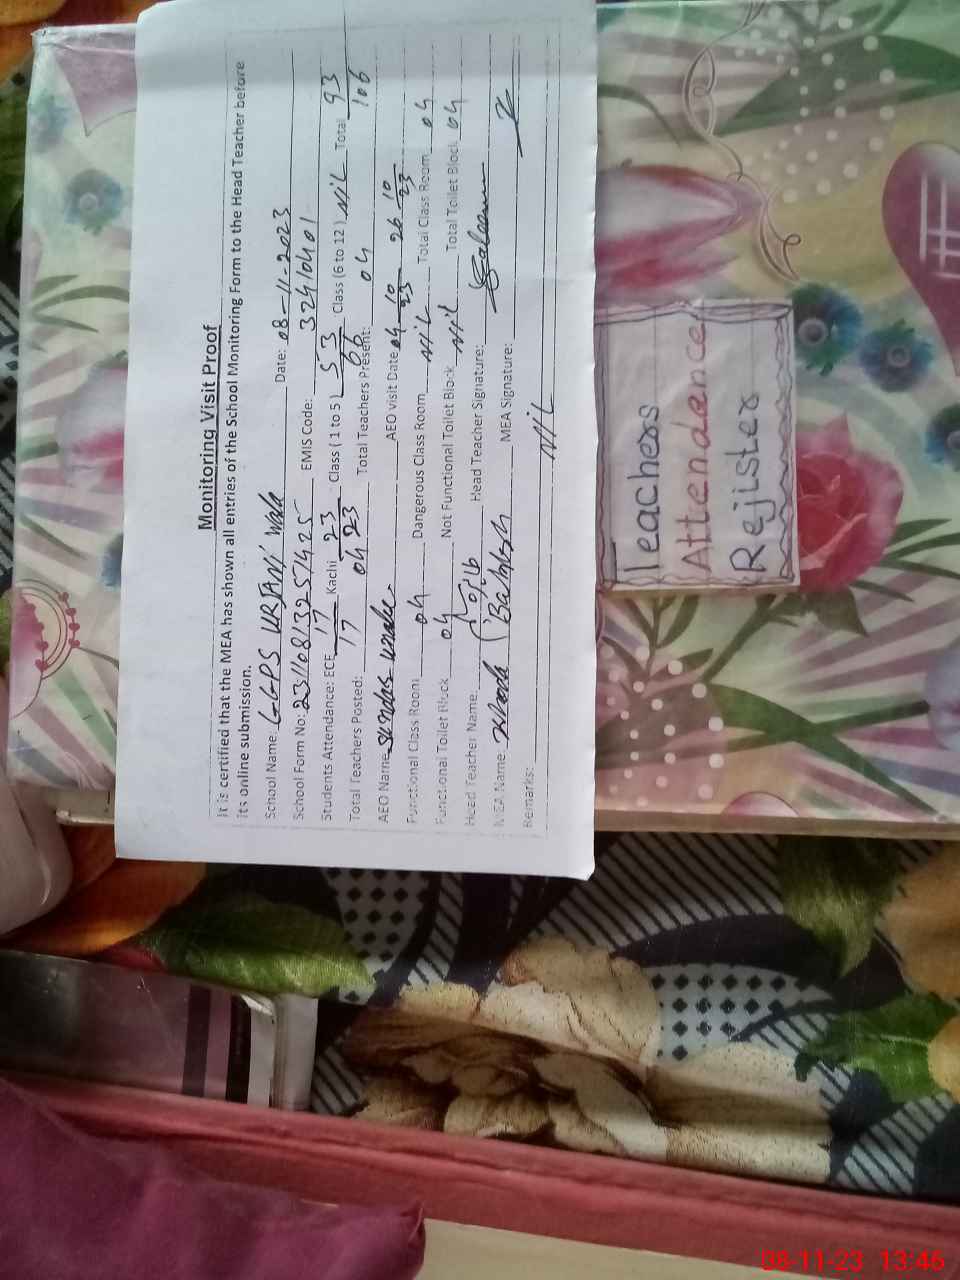 Monitoring Visit Proof
It is certified that the MEA has shown all entries of the School Monitoring Form to the Head Teacher before
its online submission.
School Name: GGPS URJANI Wala Date: 08-11-2023
School Form No: EMIS Code: 32410401
Students Attendance: ECE 17/17 Kachi 23/23 Class (1 to 5) 53/66 Class (6 to 12) Nil Total 93/106
Total Teachers Posted: 04 Total Teachers Present: 04
AEO Name AEO visit Date 04-10-23 26-10-23
Functional Class Room 04 Dangerous Class Room Nil Total Class Room 04
Functional Toilet Block 04 Not Functional Toilet Block Nil Total Toilet Block 04
Head Teacher Name Head Teacher Signature:
MEA Name MEA Signature:
Remarks: NIL
Teachers
Attendance
Rejister
08-11-23 13:46